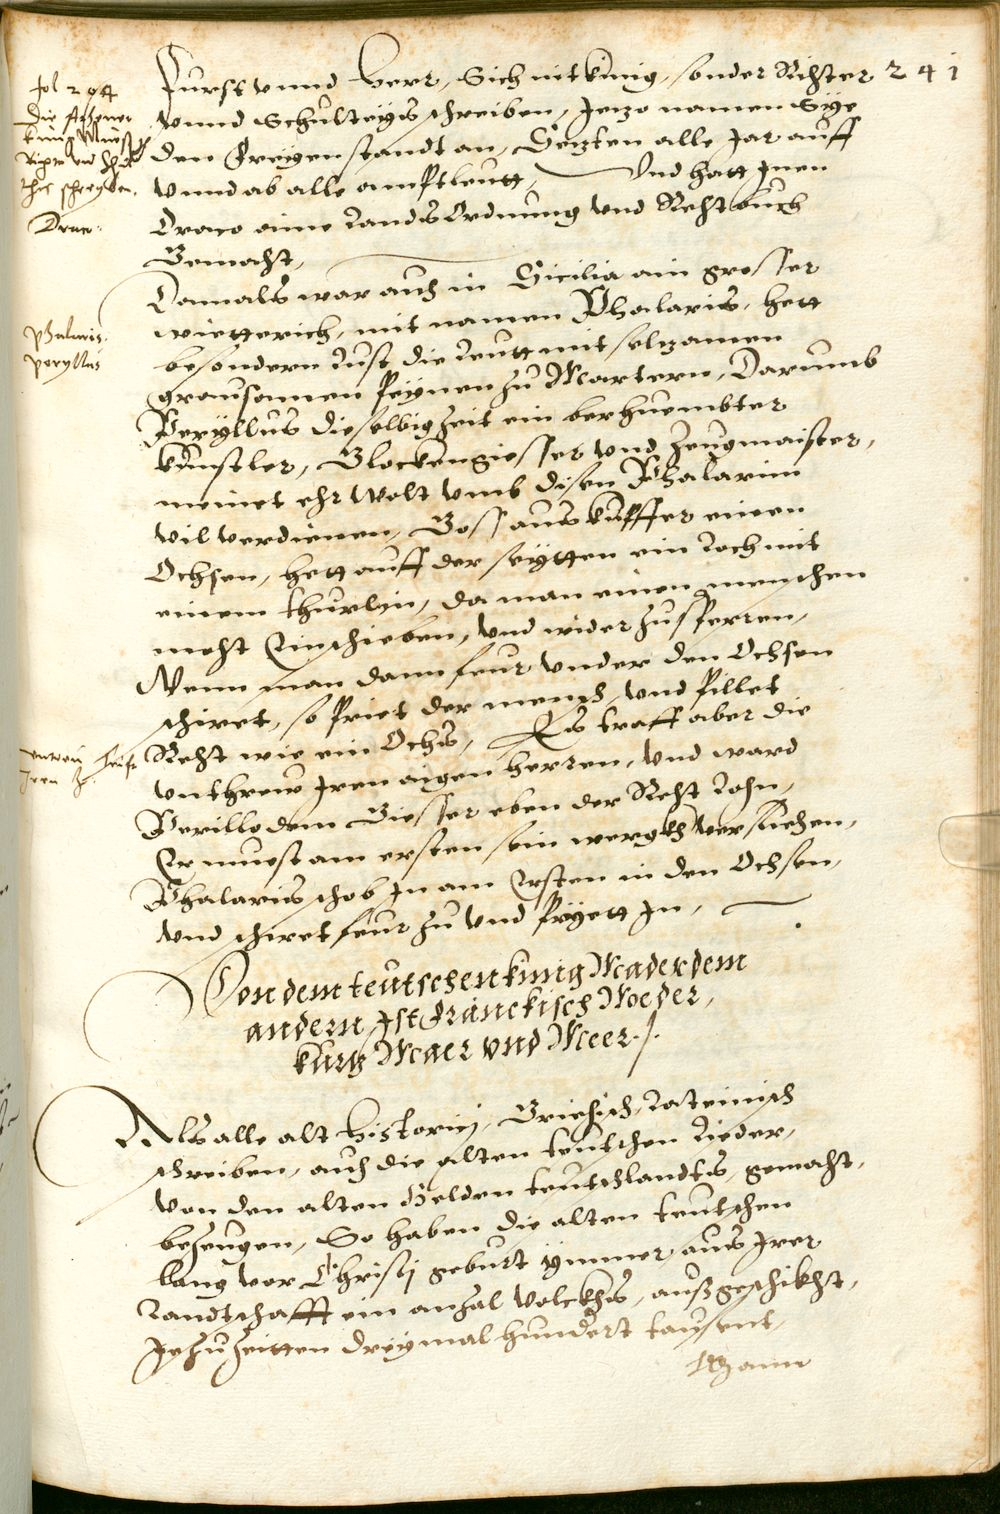 241
fol 294
Die Athener
König Müst
Richter und Schul
theis schreyben.
Draco.
Furst vnnd Herr, Sich nit künig, sonder Richter
vnnd Schulteys schreiben, Jenzo namen Sye
den Freyen standt an, Setzten alle Jar auff
vnnd ab alle amptleutt, Vnd hatt Jnen
Draco eine Landts Ordnung vnd Recht buch
Gemacht,
Damals war auch in Sicilia ain grosser
wietterich, mit namen Phalaris, hett
besondern lust die Leutt mit selzamen
grausamen Peynen zu Martern, Darumb
Peryllus dieselbig zeit ein berhuembter
künstler, Glockengiesser vnd Zeugmaister,
meinet ehr wolt vmb disen Phalarim
vil verdienen, Goss aus kupffer einen
Ochsen, hett auff der seytten ein Loch mit
einem thurlin, da man einen menschen
mocht Einschieben, vnd wider zusperren,
Wenn man dann feur vnder den Ochsen
schiret, so Priet der mensch, vnd Pillet
Recht wie ein Ochs, Es traff aber die
vnthrew Jren aigen herren, vnd ward
Perillo dem Giesser eben der Recht Lohn,
Er muest am ersten sein werckh versuchen,
Phalaris schob Jn am Ersten in den Ochsen,
vnd schiret feur zu vnd Pryett Jn,
Phalaris.
Peryllus
Von dem teutschen künig Mader dem
andern, Ist Fränckisch Moeder,
kurtz Maer vnd Meer.
Als alle alt Historien, Griechisch, Lateinisch
schreiben, auch die alten teutschen Lieder,
von den alten Helden teutschlandts, gemacht,
bezeugen, So haben die alten teutschen
lang vor Christj geburt ymmer aus Jrer
Landtschafft ein anzal volckhs, außgeschikht,
Je zu Zeitten dreymal hundert tausent,
Mann